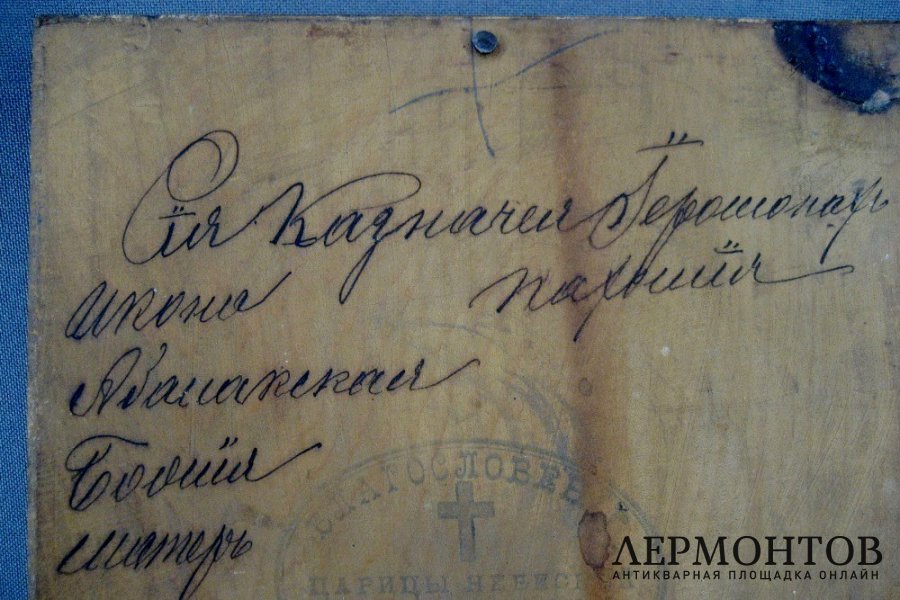 Сія Казначея Іеромонах
икона пахомія
Абалакская
Божія
матерь
БЛАГОСЛОВЕН
ЦАРИЦЫ НЕБЕС
ЛЕРМОНТОВ
АНТИКВАРНАЯ ПЛОЩАДКА ОНЛАЙН